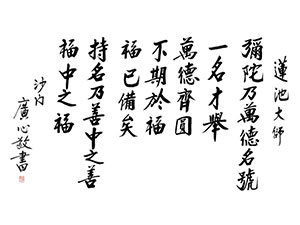 蓮池大師
彌陀乃萬德名號
一名才舉
萬德齊圓
不期於福
福已備矣
持名乃善中之善
福中之福
沙內
廣心敬書